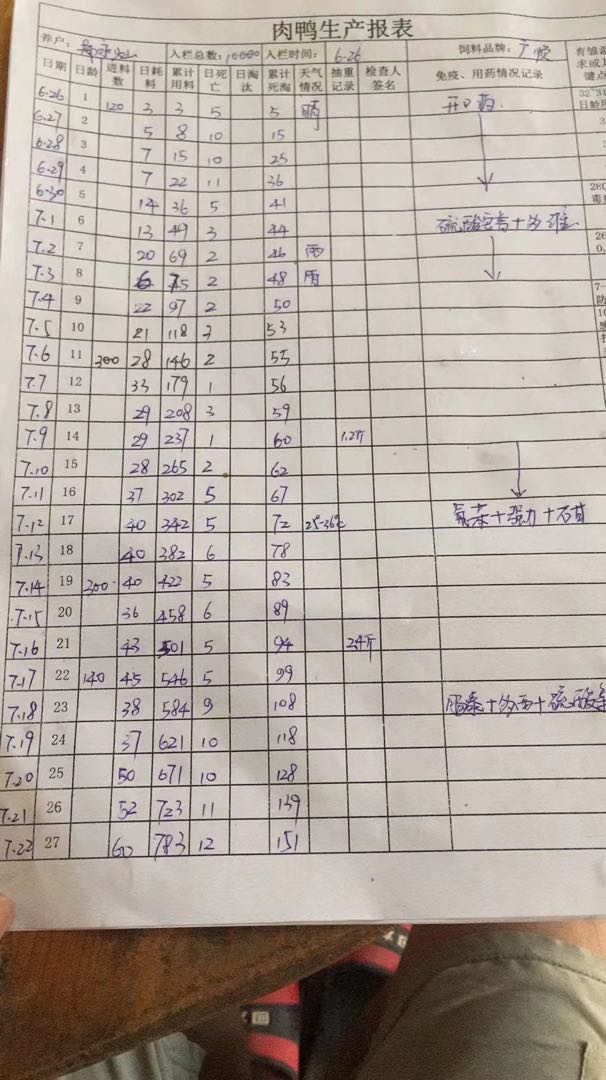 肉鸭生产报表
养户: 入栏总数:10000 入栏时间: 6.26 饲料品牌: 广顺
日期 日龄 进料数 日耗料 累计用料 日死亡 日淘汰 累计死淘 天气情况 抽重记录 检查人签名 免疫、用药情况记录
6.26 1 120 3 3 5 5 晴 开口药
6.27 2 5 8 10 15
6.28 3 7 15 10 25
6.29 4 7 22 11 36
6.30 5 14 36 5 41
7.1 6 13 49 3 44 硫酸 + 多维
7.2 7 20 69 2 46 雨
7.3 8 6 75 2 48 雨
7.4 9 22 97 2 50
7.5 10 21 118 3 53
7.6 11 300 28 146 2 55
7.7 12 33 179 1 56
7.8 13 29 208 3 59
7.9 14 29 237 1 60 1.2斤
7.10 15 28 265 2 62
7.11 16 37 302 5 67
7.12 17 40 342 5 72 25-36℃ 氟苯+强力+石甘
7.13 18 40 382 6 78
7.14 19 300 40 422 5 83
7.15 20 36 458 6 89
7.16 21 43 501 5 94 2.4斤
7.17 22 140 45 546 5 99
7.18 23 38 584 9 108
7.19 24 37 621 10 118
7.20 25 50 671 10 128
7.21 26 52 723 11 139
7.22 27 60 783 12 151